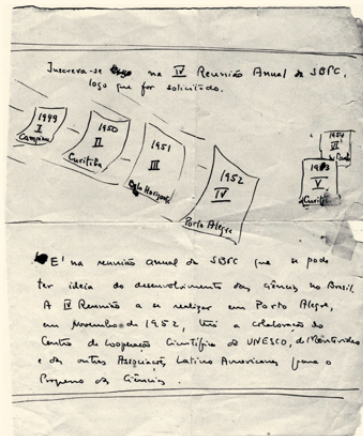 Inscreva-se na IV Reunião Anual da SBPC,
logo que for solicitado.
1949
I
Campinas
1950
II
Curitiba
1951
III
Belo Horizonte
1952
IV
Porto Alegre
1954
VI
1953
V
Curitiba
E' na reunião anual da SBPC que se pode
ter ideia do desenvolvimento das ciências no Brasil.
A IV Reunião a se realizar em Porto Alegre,
em Novembro de 1952, terá a colaboração do
Centro de Cooperação Científica da UNESCO, de Montevideo
e das outras Associações Latino Americanas para o
Progresso das Ciências.